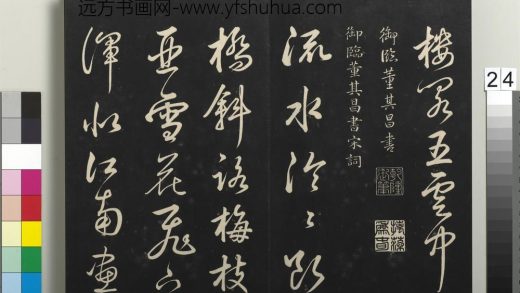 远方书画网-www.yfshuhua.com
24
樓閣五雲中
御臨董其昌書
御臨董其昌書宋詞
流水泠〻斷
橋斜路梅枝
亞雪花飛下
渾似江南畫